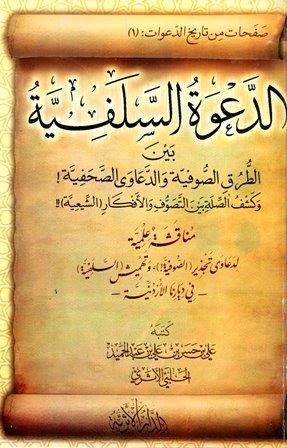 صَفَحَات مِن تَاريخ الدَّعوَات: (١)
الدَّعْوَةُ السَّلَفِيَّةُ
بَيْنَ
الطُّرُقِ الصُّوفِيَّة وَالدَّعَاوَى الصَّحَفِيَّة!
وَكَشْفُ الصِّلَةِ بَيْنَ التَّصَوُّفِ وَالأَفْكَارِ (الشِّيعِيَّة)!!
مُنَاقَشَةٌ عِلْمِيَّة
لِدَعَاوَى تَجْذِيرِ (الصُّوفِيَّة!)، وَتَهْمِيشِ (السَّلَفِيَّة)
- فِي دِيَارِنَا الأُرْدُنِيَّة -
كَتَبَهُ
عَلِيُّ بْنُ حَسَنِ بْنِ عَلِيِّ بْنِ عَبْدِ الحَمِيدِ
الحَلَبِيُّ الأَثَرِيُّ
الدار الأثرية